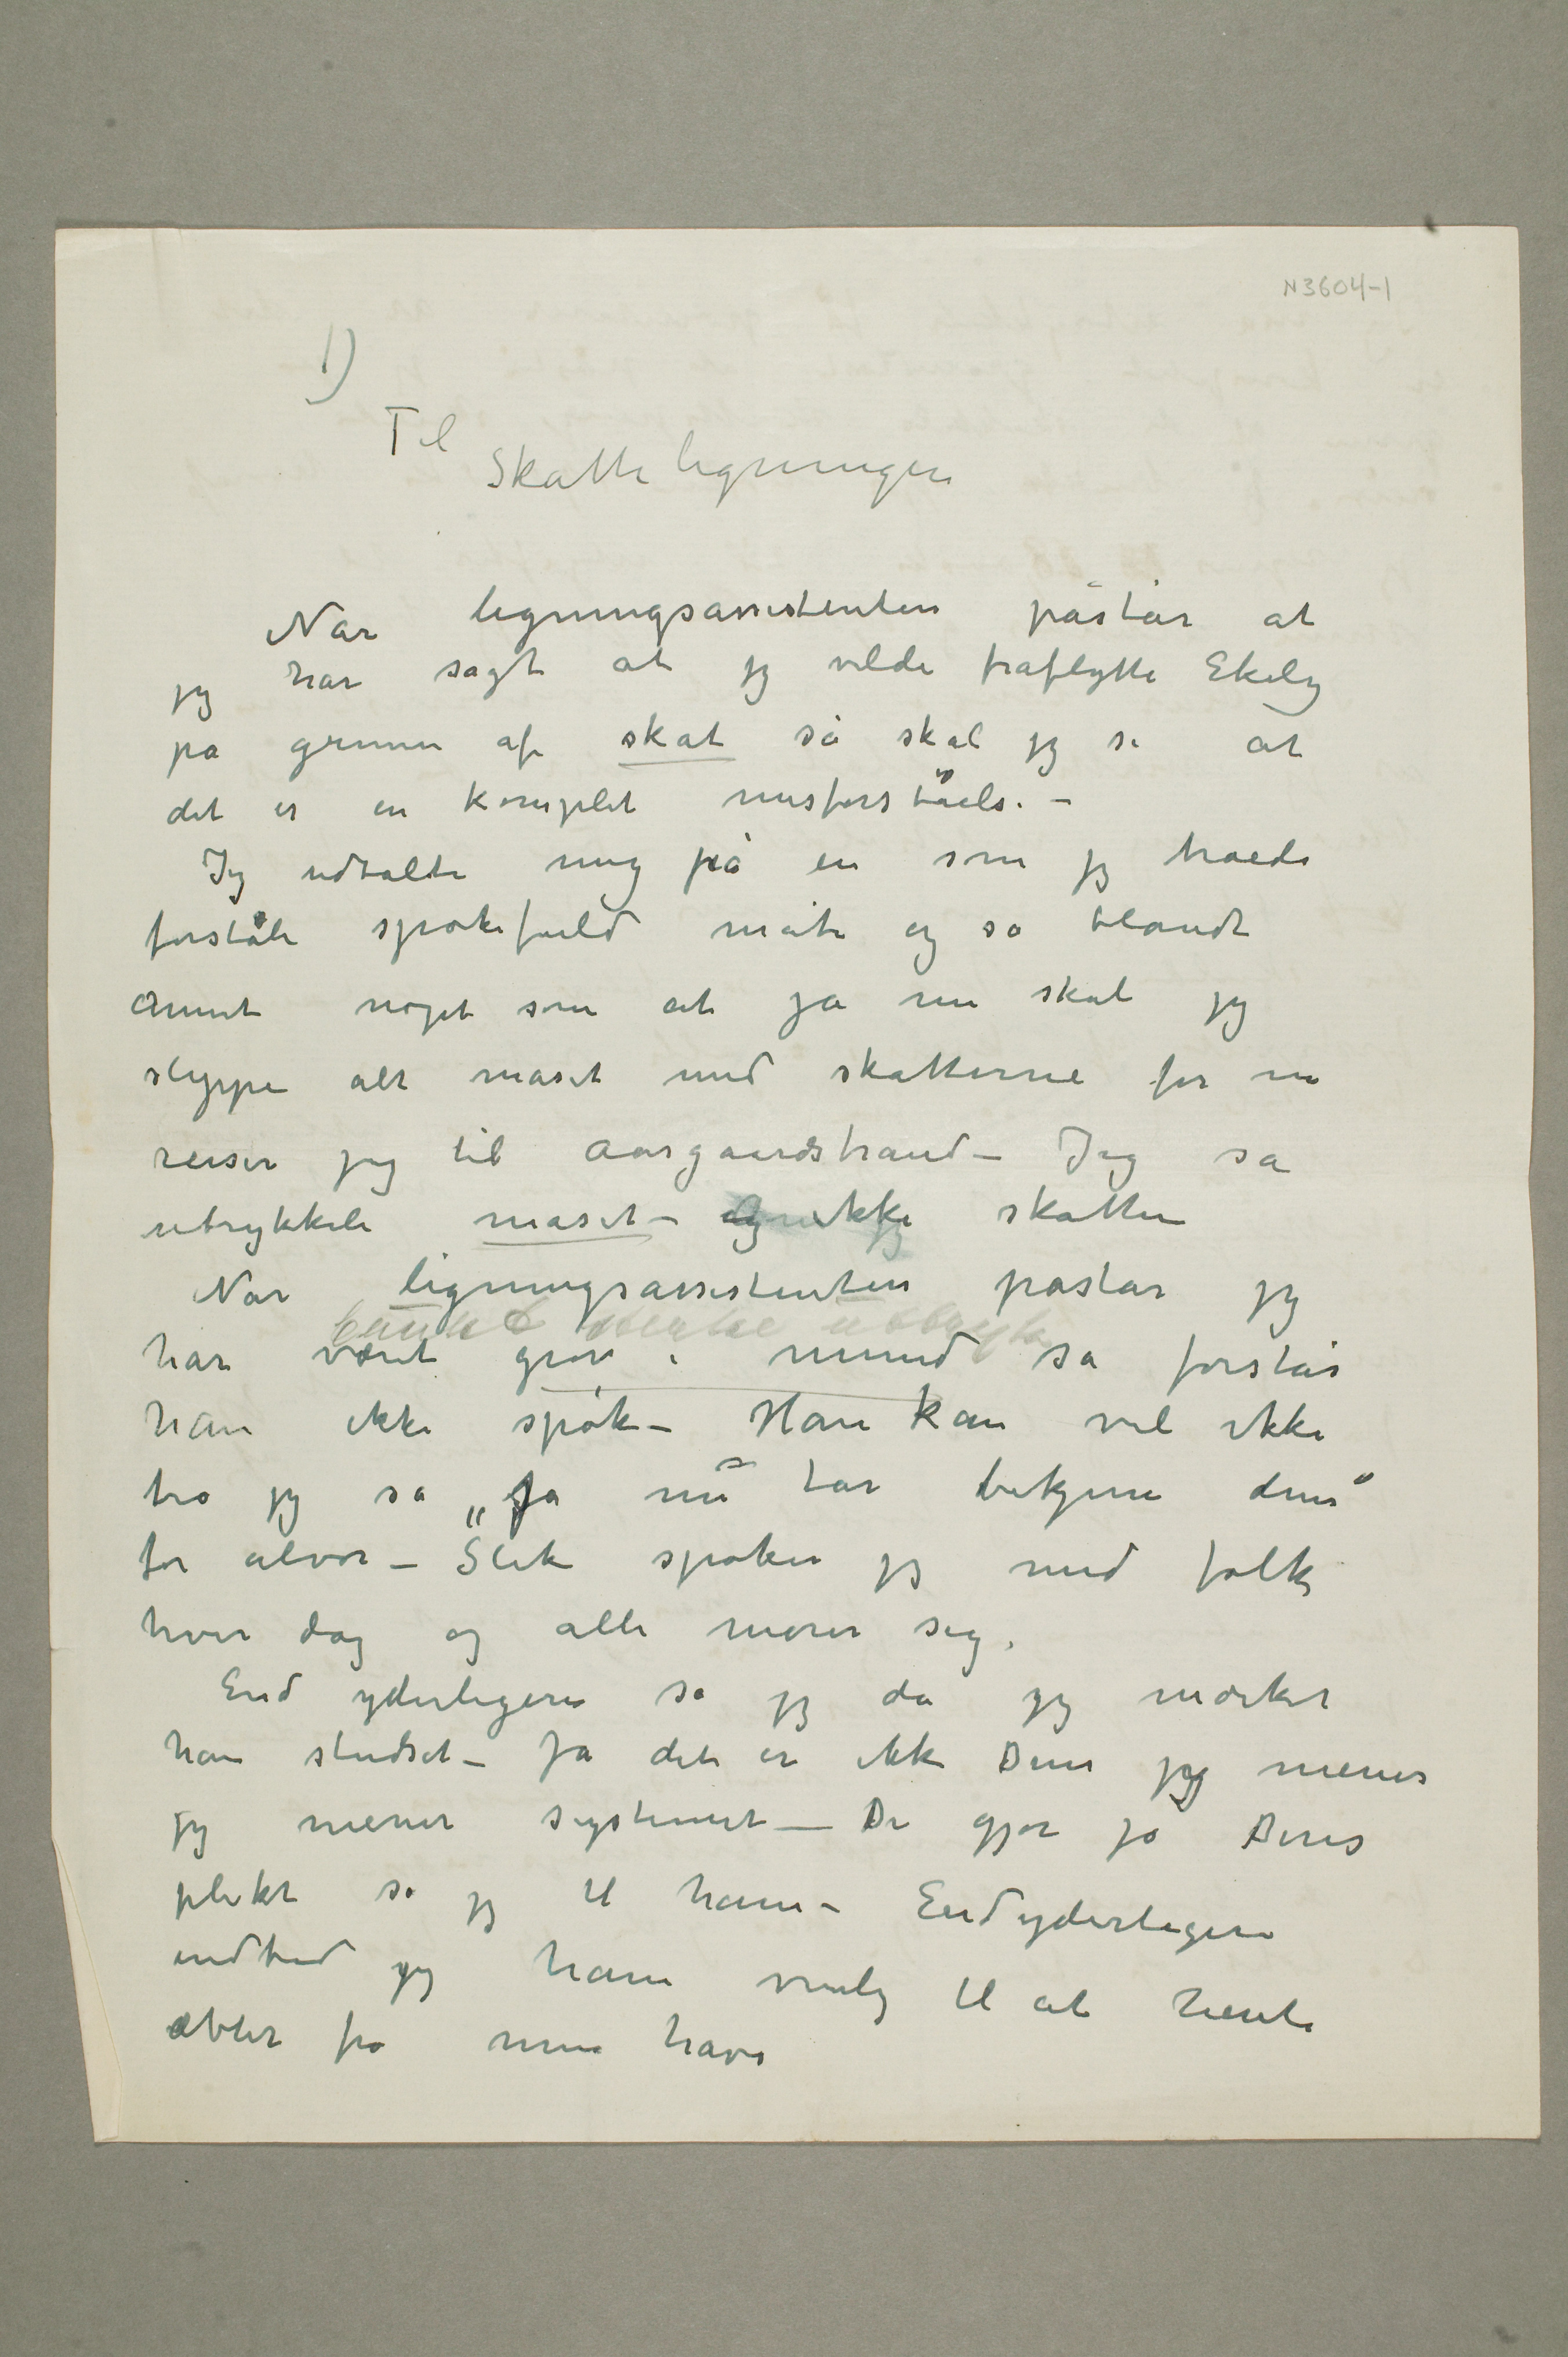 N3604-1
1)
Til
Skatteligningen
Når ligningsassistenten påstår at
jeg har sagt at jeg vilde fraflytte Ekely
på grunn af skat så skal jeg si at
det er en komplet misforståelse. –
Jeg udtalte mig på en som jeg troede
forståle spøkefuld måte og sa blandt
annet noget som at ja nu skal jeg
slippe alt maset med skatterne for nu
reiser jeg til Aasgaardstrand – Jeg sa
utrykkeli maset – ikke skatten
Når ligningsassistenten påstår jeg
brukte stærke udtryk
har været grov i mund så forstår
han ikke spøk – Han kan vel ikke
tro jeg sa „Ja nu tar bekjene dem“
for alvor – Slik spøker jeg med folk
hver dag og alle morer sig.
End yderligere sa jeg da jeg mærket
han studset – Ja det er ikke Dem jeg mener
jeg mener systemet – De gjør jo Deres
plikt sa jeg til ham – End yderligere
indbød jeg ham venlig til at hente
æbler fra min have